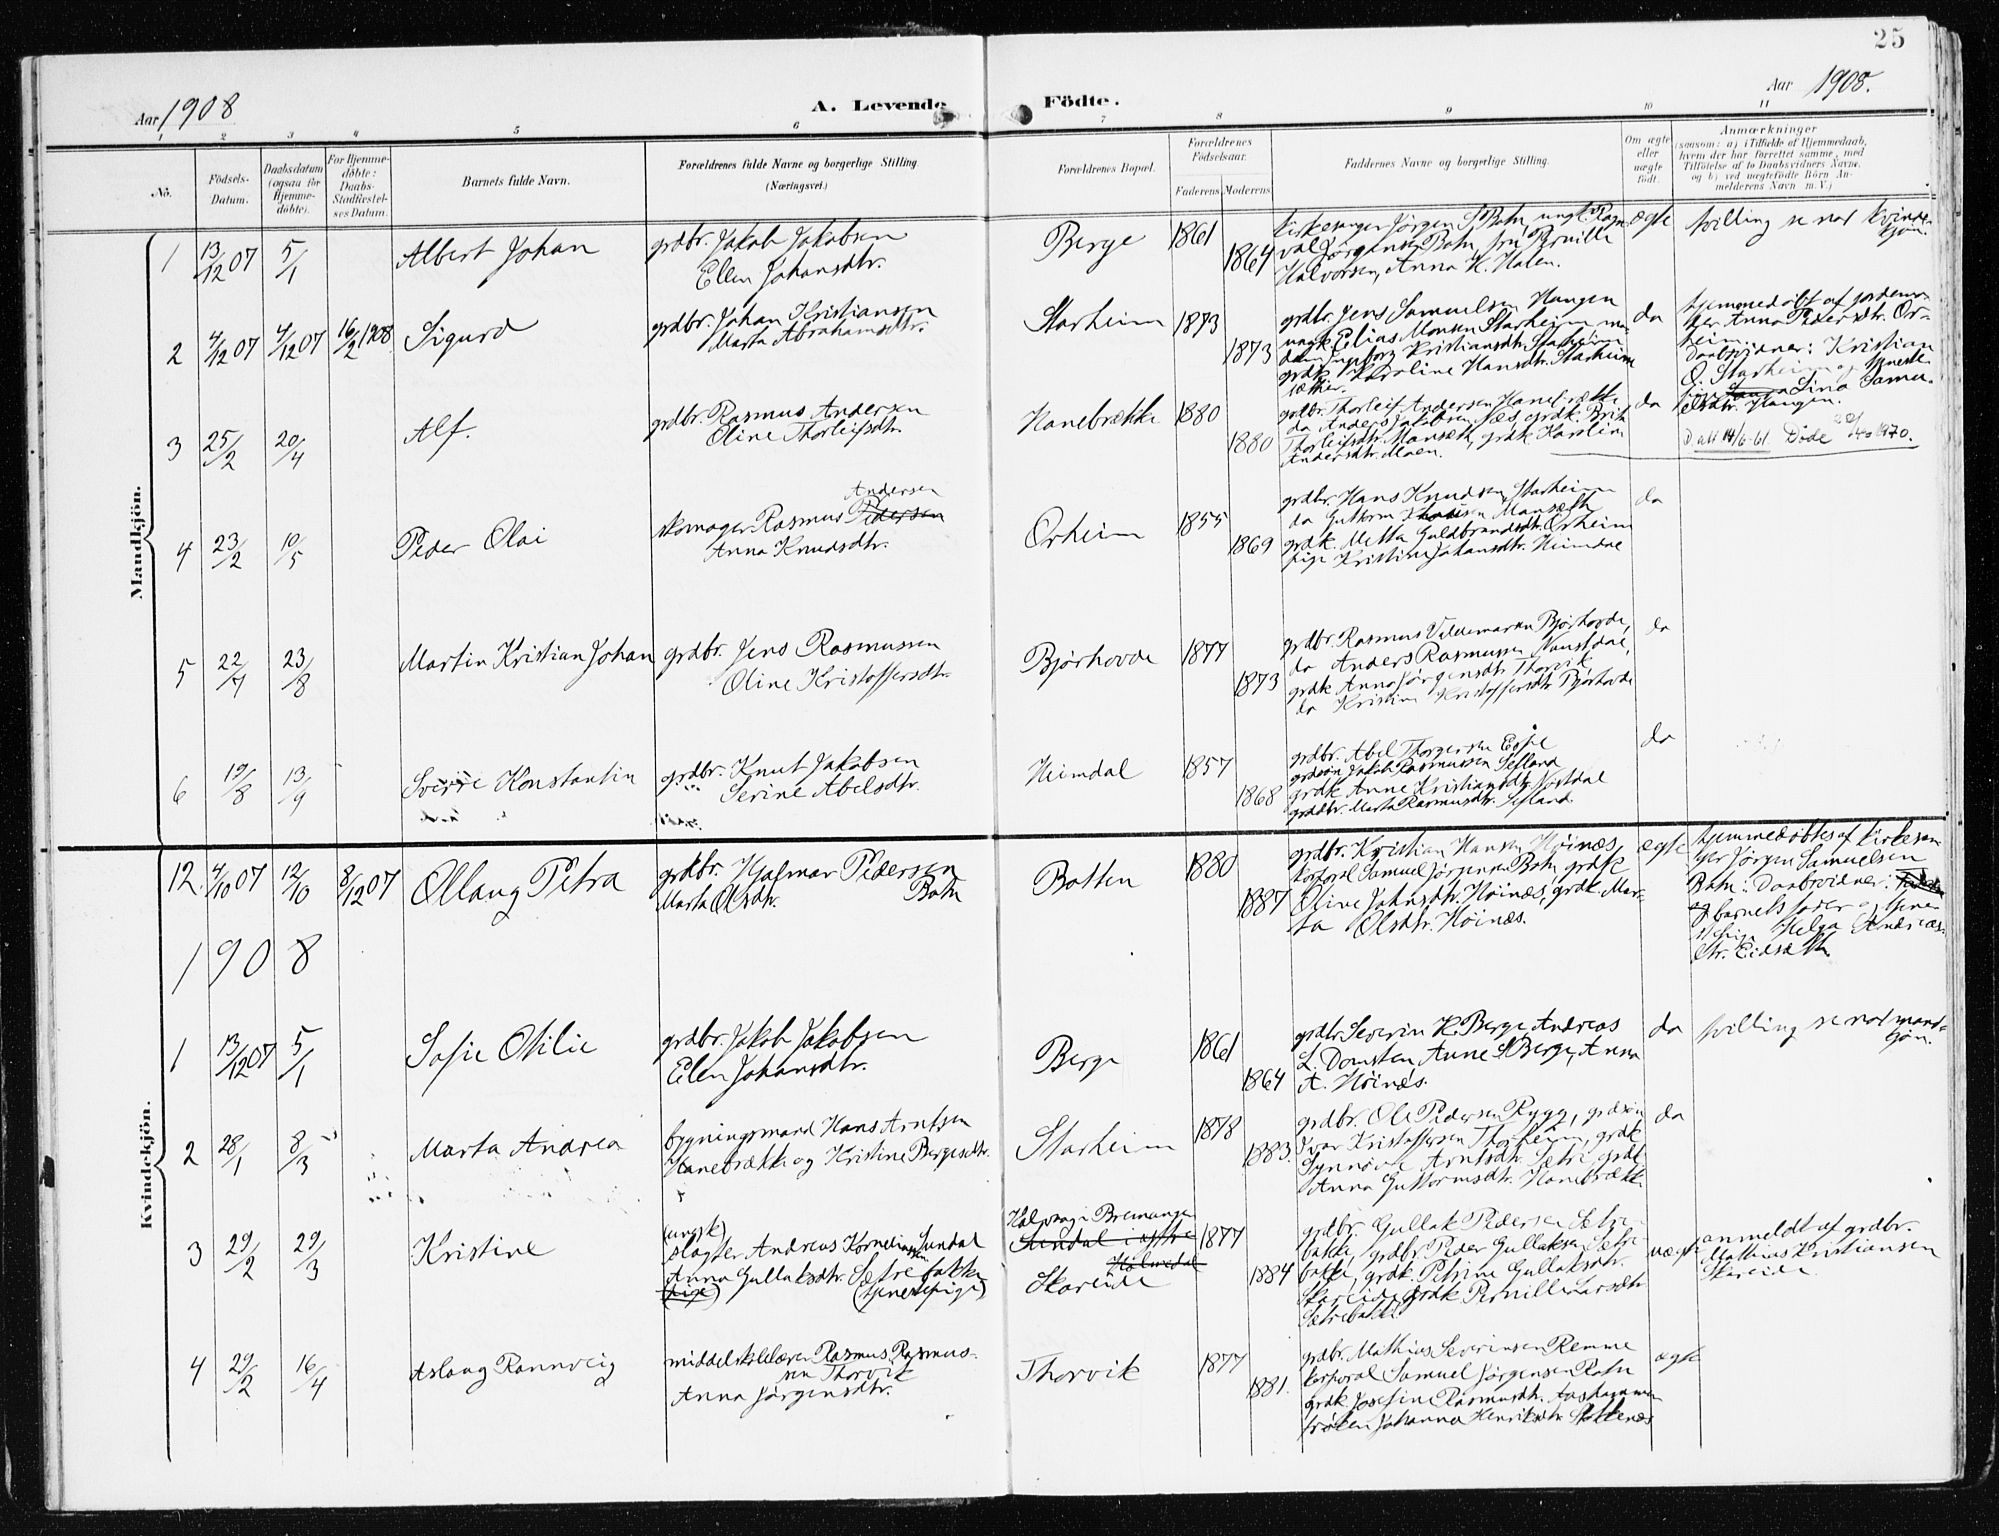 25
Aar 1908
A. Levende Födte.
Aar 1908.
1 2 3 4 5 6 7 8 9 10 11
No.
Födsels-
Datum.
Daabsdatum
(ogsaa for
Hjemme-
döbte).
For Hjemme-
döbte:
Daabs-
Stadfæstel-
ses Datum.
Barnets fulde Navn.
Forældrenes fulde Navne og borgerlige Stilling
(Næringsvei.)
Forældrenes Bopæl.
Forældrenes
Födselsaar.
Faderens Moderens
Faddernes Navne og borgerlige Stilling.
Om ægte
eller
uægte
födt.
Anmærkninger
(saasom: a) i Tilfælde af Hjemmedaab,
hvem der har forrettet samme, med
Tilföielse af to Daabsvidners Navne,
og b) ved uægtefödte Börn An-
melderens Navn m. V.)
Mandkjön.
1 13/12 07 5/1 Albert Johan
grdbr. Jakob Jakobsen
Elen Johansdtr.
Berge 1861 1864
kirkesanger Jörgen S. Botn, ungk. Ragn-
val Jörgensen Botn, fru Pernille
Halvorsen, Anna K. Halen.
ægte
tvilling se no 1 kvinde-
kjön.
2 4/12 07 4/12 07 16/2 1908 Sigurd
grdbr. Johan Kristiansen
Marta Abrahamsdtr.
Starheim 1873 1873
grdbr. Jens Samuelsen Haugen
ungk. Elias Monsen Starheim ma-
dam Ingeborg Kristiansdtr. Starheim
grdk. Karoline Hansdtr. Starheim
do
hjemmedöbt af jordemo-
der Anna Pedersdtr. Or-
heim.
Daabsvidner: Kristian
O. Starheim og tjeneste-
Lina Samu-
elsdtr. Haugen.
3 25/2 20/4 Alf.
grdbr. Rasmus Andersen
Oline Thorleifsdtr.
Hanebrække 1880 1880
grdbr. Thorleif Andersen Hanebrække
do Anders Jakobsen Næs grdk. Brit
Thorleifsdtr. Mansæth, grdk. Karoline
Andersdtr. Moen.
do
D att 14/6-61 Döde 1970.
4 23/2 10/5 Peder Olai
Andersen
skomager Rasmus Pedersen
Anna Knudsdtr.
Orheim 1855 1869
grdbr. Hans Knudsen Starheim
do Guttorm Mansæth
grdk. Metta Guldbrandsdtr. Orheim
pige Kristine Johansdtr. Heimdal
do
5 22/7 23/8 Martin Kristian Johan
grdbr. Jens Rasmussen
Oline Kristoffersdtr.
Bjørhovde 1877 1873
grdbr. Rasmus Valdemarsen Bjørhovde,
do Anders Rasmussen Naustdal,
grdk Anna Jørgensdtr. Thorvik
do Kristine Kristoffersdtr Bjørhovde
do
6 19/8 13/9 Sverre Konstantin
grdbr. Knut Jakobsen
Serine Abelsdtr.
Heimdal 1857 1868
grdbr. Abel Thorgersen Espe
grdsön Jakob Rasmussen Sefland
grdk Anne Kristiansdtr. Nordal
grddtr. Marta Rasmusdtr. Sefland.
do
Kvindekjön.
12. 4/10 07 12/10 8/12 07 Ollaug Petra
grdbr. Hjalmar Pedersen
Marta Olsdtr. Botn
Botten 1880 1887
grdbr. Kristian Hansen Höinæs,
korporal Samuel Jörgensen Botn, grdk
Oline Johnsdtr. Höinæs, grdk. Mar-
ta Olsdtr. Höinæs.
ægte
hjemmedöbtes af kirkesan-
ger Jörgen Samuelsen
Botn: Daabsvidner:
og barnets fader og tjene-
stepige Helga Andreas-
dtr. Eidsæth
1908
1 13/12 07 5/1 Sofie Otilie
grdbr. Jakob Jakobsen
Elen Johansdtr.
Berge 1861 1864
grdbr Severin K. Berge, Andreas
L. Domsten, Anne S. Berge, Anna
A. Höinæs.
do
tvilling se no 1 mand-
kjön.
2 28/1 8/3 Marta Andrea
bygningsmand Hans Arntsen
Hanebrække og Kristine Bergesdtr.
Starheim 1878 1883.
grdbr. Ole Pedersen Rygg, grdsön
Ivar Kristoffersen Thorheim, grdk
Synnöve Arntsdtr. Sætre grdk
Anna Guttormsdtr. Hanebrække
do
3 29/2 29/3 Kristine
(ungk)
slagter Andreas Korneliussen Sundal
Anna Gullaksdtr. Sætrebakke
(pige) (tjenestepige)
Kalvaag i Bremanger
Sundal i
Holmedal
Skareide
1877 1884
grdbr. Gullak Pedersen Sætre-
bakke, grdbr. Peder Gullaksen Sætre-
bakke, grdk. Petrine Gullaksdtr.
Skareide, grdk Pernille Larsdtr
Sætrebakke
uægte
anmeldt af grdbr.
Mathias Kristiansen
Skareide
4 29/2 16/4 Aslaug Rannveig
middelskolelærer Rasmus Rasmus-
sen Thorvik
Anna Jørgensdtr.
Thorvik 1877 1881.
grdbr. Mathias Severinsen Remme
korporal Samuel Jörgensen Botn
grdk. Josefine Rasmusdtr. Aashammer
fröken Johanna Henriksdtr. Stokkenæs
ægte